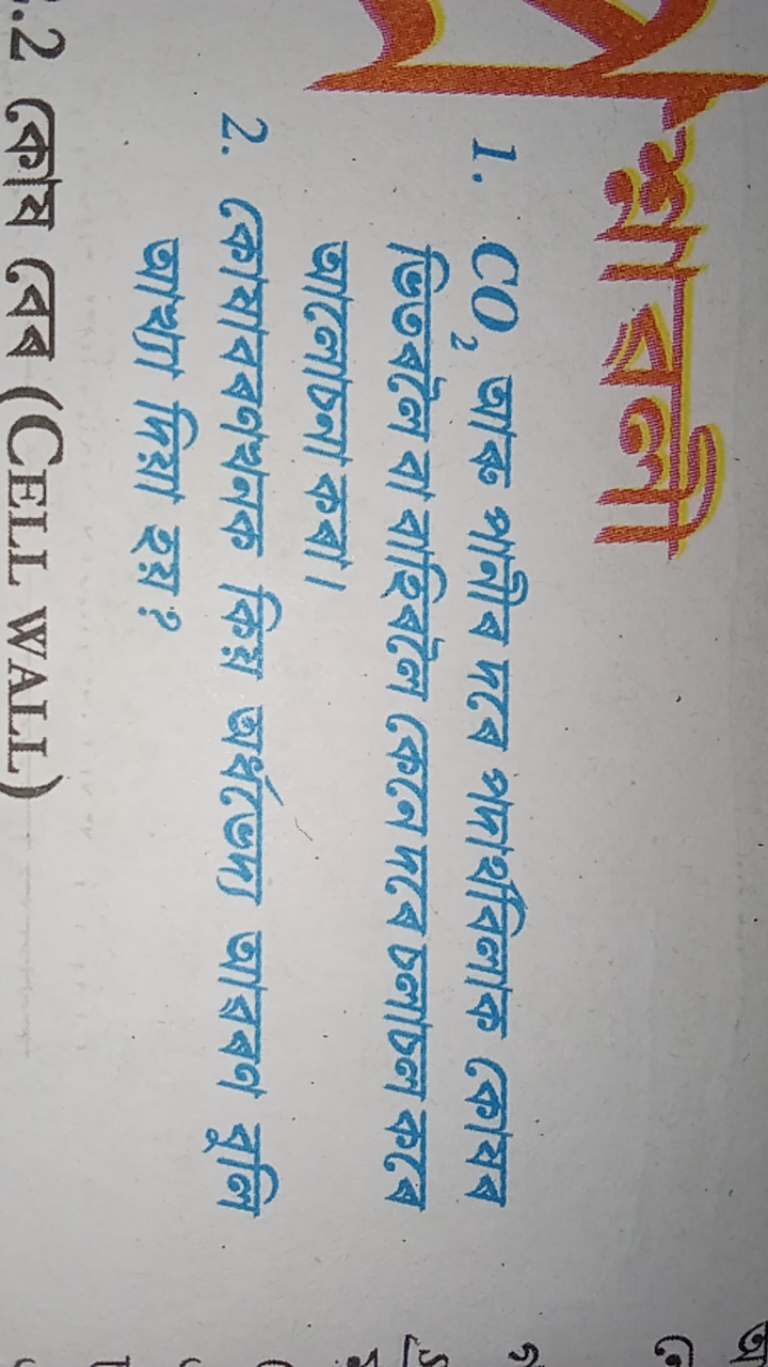 প্ৰশ্নাৱলী
1. CO₂ আৰু পানীৰ দৰে পদাৰ্থবিলাক কোষৰ
ভিতৰলৈ বা বাহিৰলৈ কেনেদৰে চলাচল কৰে
আলোচনা কৰা।
2. কোষাবৰণখনক কিয় অৰ্ধভেদ্য আৱৰণ বুলি
আখ্যা দিয়া হয়?
.2 কোষ বেৰ (CELL WALL)